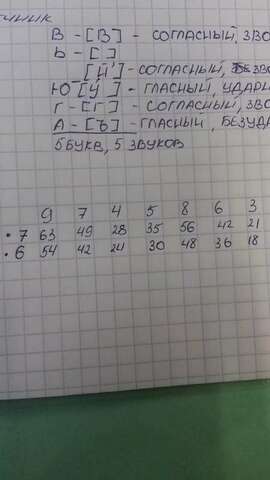 тчник
В - [В] - СОГЛАСНЫЙ, ЗВО
Ь - [ ]
[Й'] - СОГЛАСНЫЙ, ЗВО
Ю [У] - ГЛАСНЫЙ, УДАРН
Г - [Г] - СОГЛАСНЫЙ, ЗВО
А - [Ъ] - ГЛАСНЫЙ, БЕЗУДА
5 БУКВ, 5 ЗВУКОВ
9 7 4 5 8 6 3
• 7 63 49 28 35 56 42 21
• 6 54 42 24 30 48 36 18